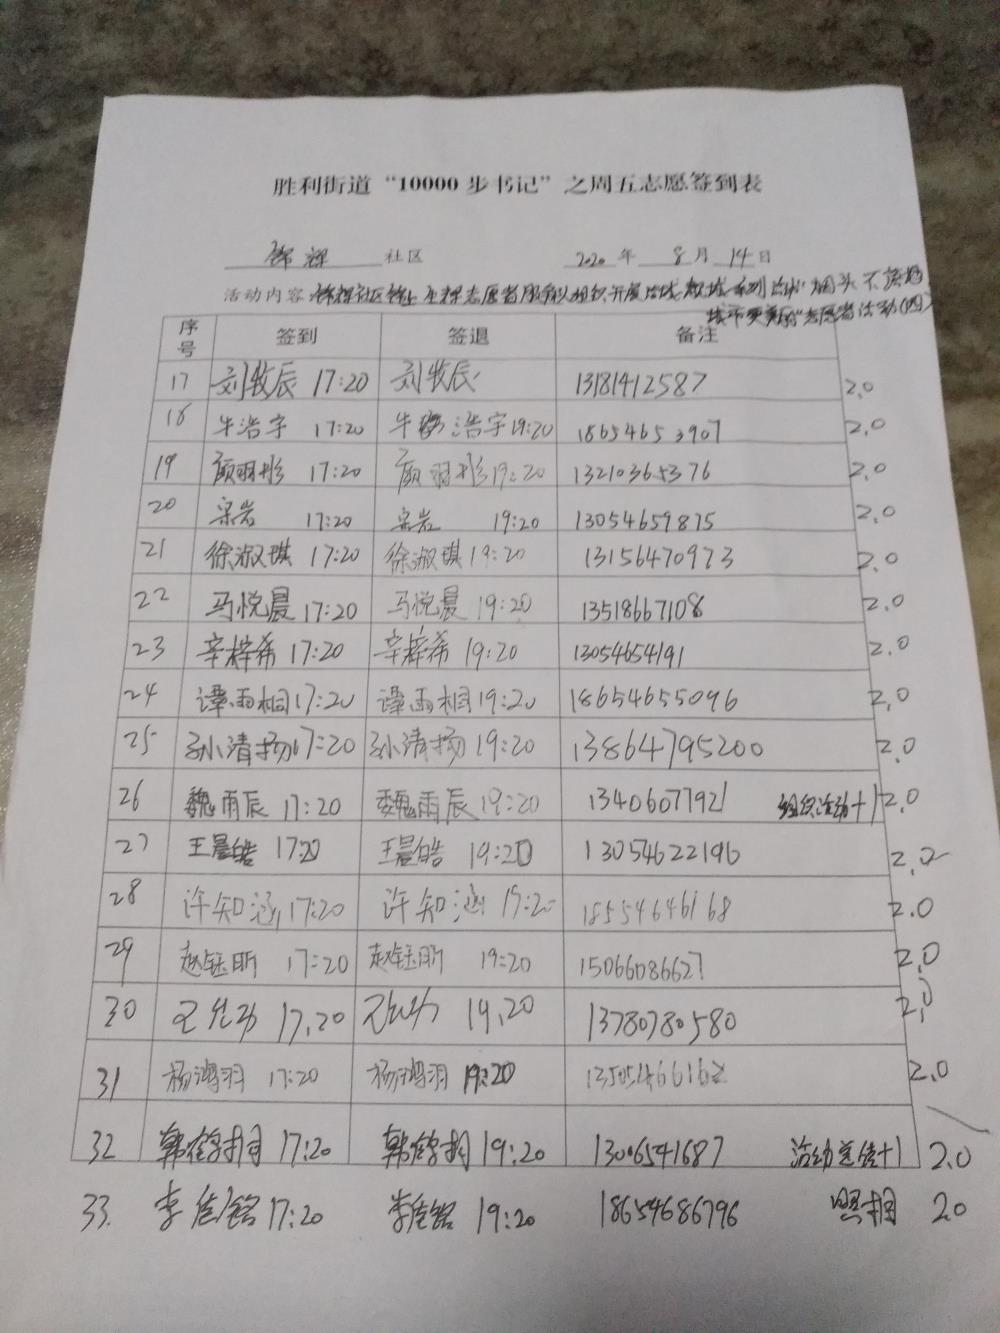 胜利街道“10000步书记”之周五志愿签到表
锦辉 社区 2020年 8月 14日
活动内容:锦辉社区 志愿者服务队组织开展 系列活动“烟头不落地
志愿者活动(四)
序号 签到 签退 备注
17 刘牧辰 17:20 刘牧辰 13181412587 2.0
18 牛浩宇 17:20 牛浩宇 19:20 18654653907 2.0
19 颜羽彤 17:20 颜羽彤 19:20 13210365376 2.0
20 宋岩 17:20 宋岩 19:20 13054659875 2.0
21 徐淑琪 17:20 徐淑琪 19:20 13156470973 2.0
22 马悦晨 17:20 马悦晨 19:20 13518667108 2.0
23 辛梓希 17:20 辛梓希 19:20 13054654191 2.0
24 谭雨桐 17:20 谭雨桐 19:20 18654655096 2.0
25 孙清扬 17:20 孙清扬 19:20 13864795200 2.0
26 魏雨辰 17:20 魏雨辰 19:20 13406077921 组织活动+1 2.0
27 王晨皓 17:20 王晨皓 19:20 13054622196 2.0
28 许知涵 17:20 许知涵 19:20 18554646168 2.0
29 赵钰昕 17:20 赵钰昕 19:20 15066086627 2.0
30 17.20 19.20 13780780580 2.0
31 杨鸿羽 17:20 杨鸿羽 19:20 13505466162 2.0
32 韩鹤翔 17:20 韩鹤翔 19:20 13006541687 活动总结+1 2.0
33. 李佳铭 17:20 李佳铭 19:20 18654686796 照相 2.0